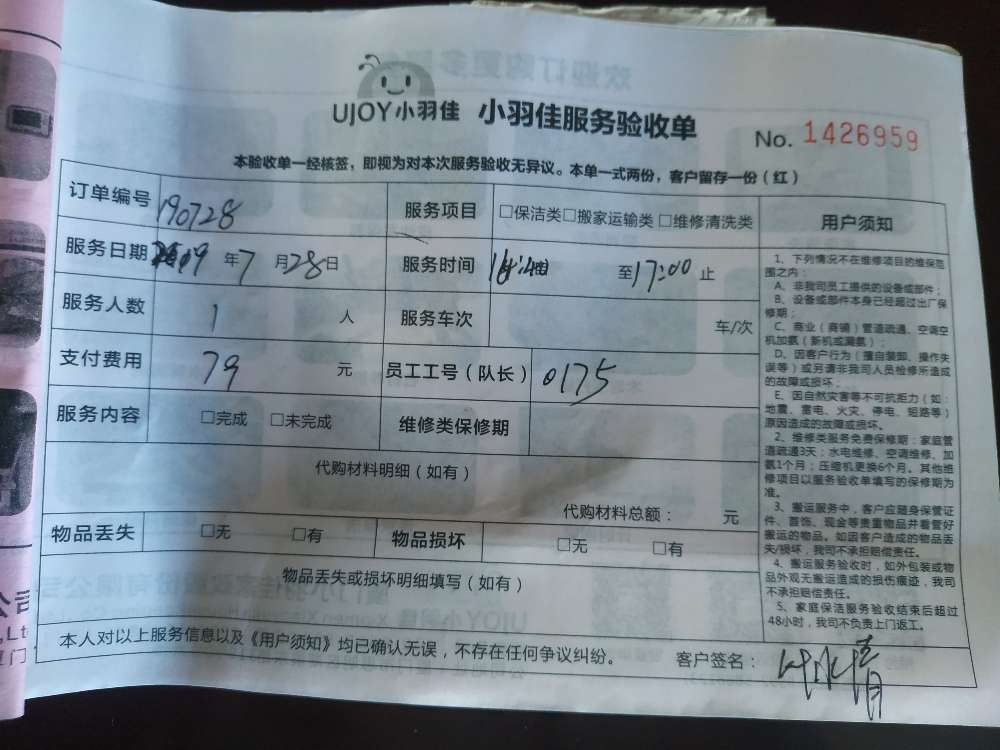 UJOY小羽佳 小羽佳服务验收单 No. 1426959
本验收单一经核签，即视为对本次服务验收无异议。本单一式两份，客户留存一份（红）
订单编号 190728 服务项目 □保洁类□搬家运输类□维修清洗类
服务日期 2019年7月28日 服务时间 至17:00止
服务人数 1 人 服务车次 车/次
支付费用 79 元 员工工号（队长） 0175
服务内容 □完成 □未完成 维修类保修期
代购材料明细（如有）
代购材料总额： 元
物品丢失 □无 □有 物品损坏 □无 □有
物品丢失或损坏明细填写（如有）
本人对以上服务信息以及《用户须知》均已确认无误，不存在任何争议纠纷。 客户签名：
用户须知
1、下列情况不在维修项目的维保范
围之内：
A、非我司员工提供的设备或部件；
B、设备或部件本身已经超过出厂保
修期；
C、商业（商铺）管道疏通、空调空
机加氨（新机或漏氨）；
D、因客户行为（擅自装卸、操作失
误等）或另请非我司人员检修所造成
的故障或损坏；
E、因自然灾害等不可抗拒力（如：
地震、雷电、火灾、停电、短路等）
原因造成的故障或损坏。
2、维修类服务免费保修期：家庭管
道疏通3天；水电维修、空调维修、加
氨1个月；压缩机更换6个月。其他维
修项目以服务验收单填写的保修期为
准。
3、搬运服务中，客户应随身保管证
件、首饰、现金等贵重物品并看管好
搬运的物品。如因客户造成的物品丢
失/损坏，我司不承担赔偿责任。
4、搬运服务验收时，如外包装或物
品外观无搬运造成的损伤痕迹，我司
不承担赔偿责任。
5、家庭保洁服务验收结束后超过
48小时，我司不负责上门返工。